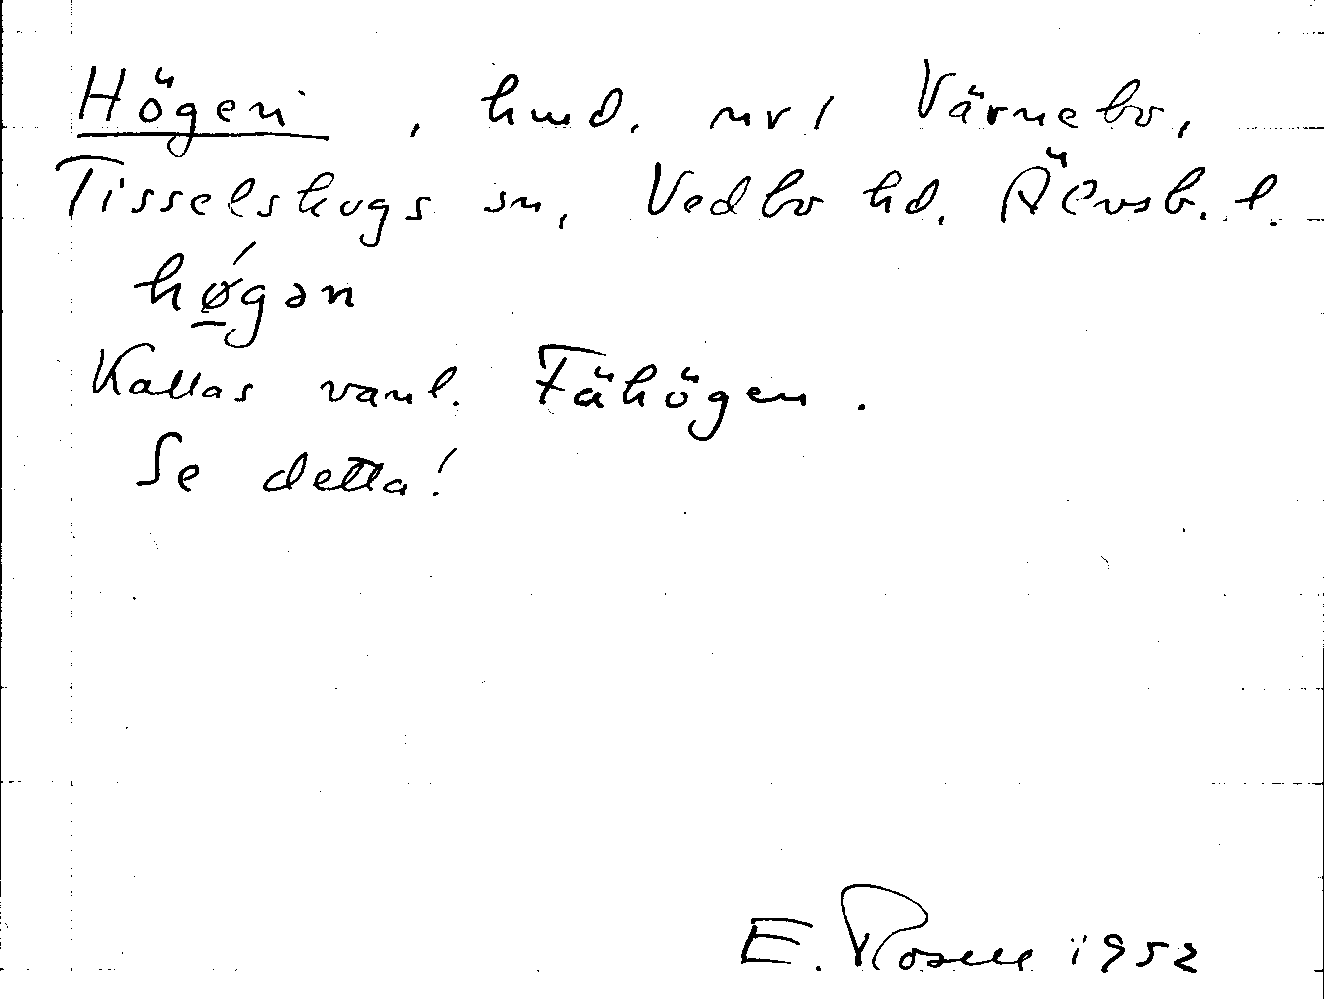 Högen, hmd. nr 1 Värnebo,
Tisselskogs sn, Vedbo hd. Älvsb. l.
hǿ̲gən
Kallas vanl. Fähögen.
Se detta!
E. Rosell 1952